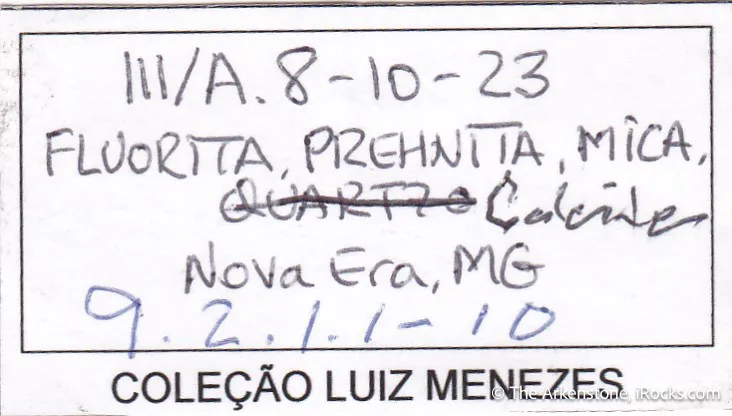 III/A. 8-10-23
FLUORITA, PREHNITA, MICA,
QUARTZO Calcita
Nova Era, MG
9.2.1.1-10
COLEÇÃO LUIZ MENEZES
© The Arkenstone, iRocks.com